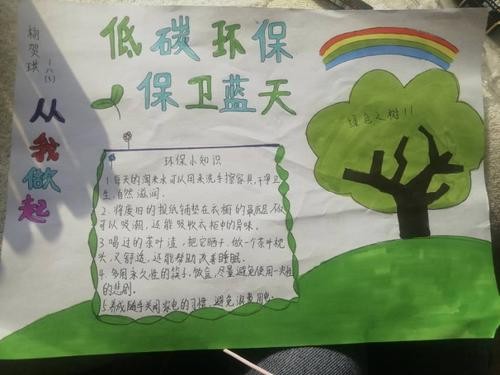 低碳环保
保卫蓝天
从我做起
绿色之树!!
环保小知识
1.每天的淘米水可以用来洗手擦容具,干净卫
生,自然滋润。
2.将废旧的报纸铺垫在衣橱的最底层,不仅
可以吸潮,还能吸收衣柜中的异味。
3.喝过的茶叶渣,把它晒干,做一个茶叶枕
头,又舒适,还能帮助改善睡眠。
4.多用永久性的筷子、饭盒,尽量避免使用一次性
的
5.养成随手关闭家电的习惯,避免浪费用电。